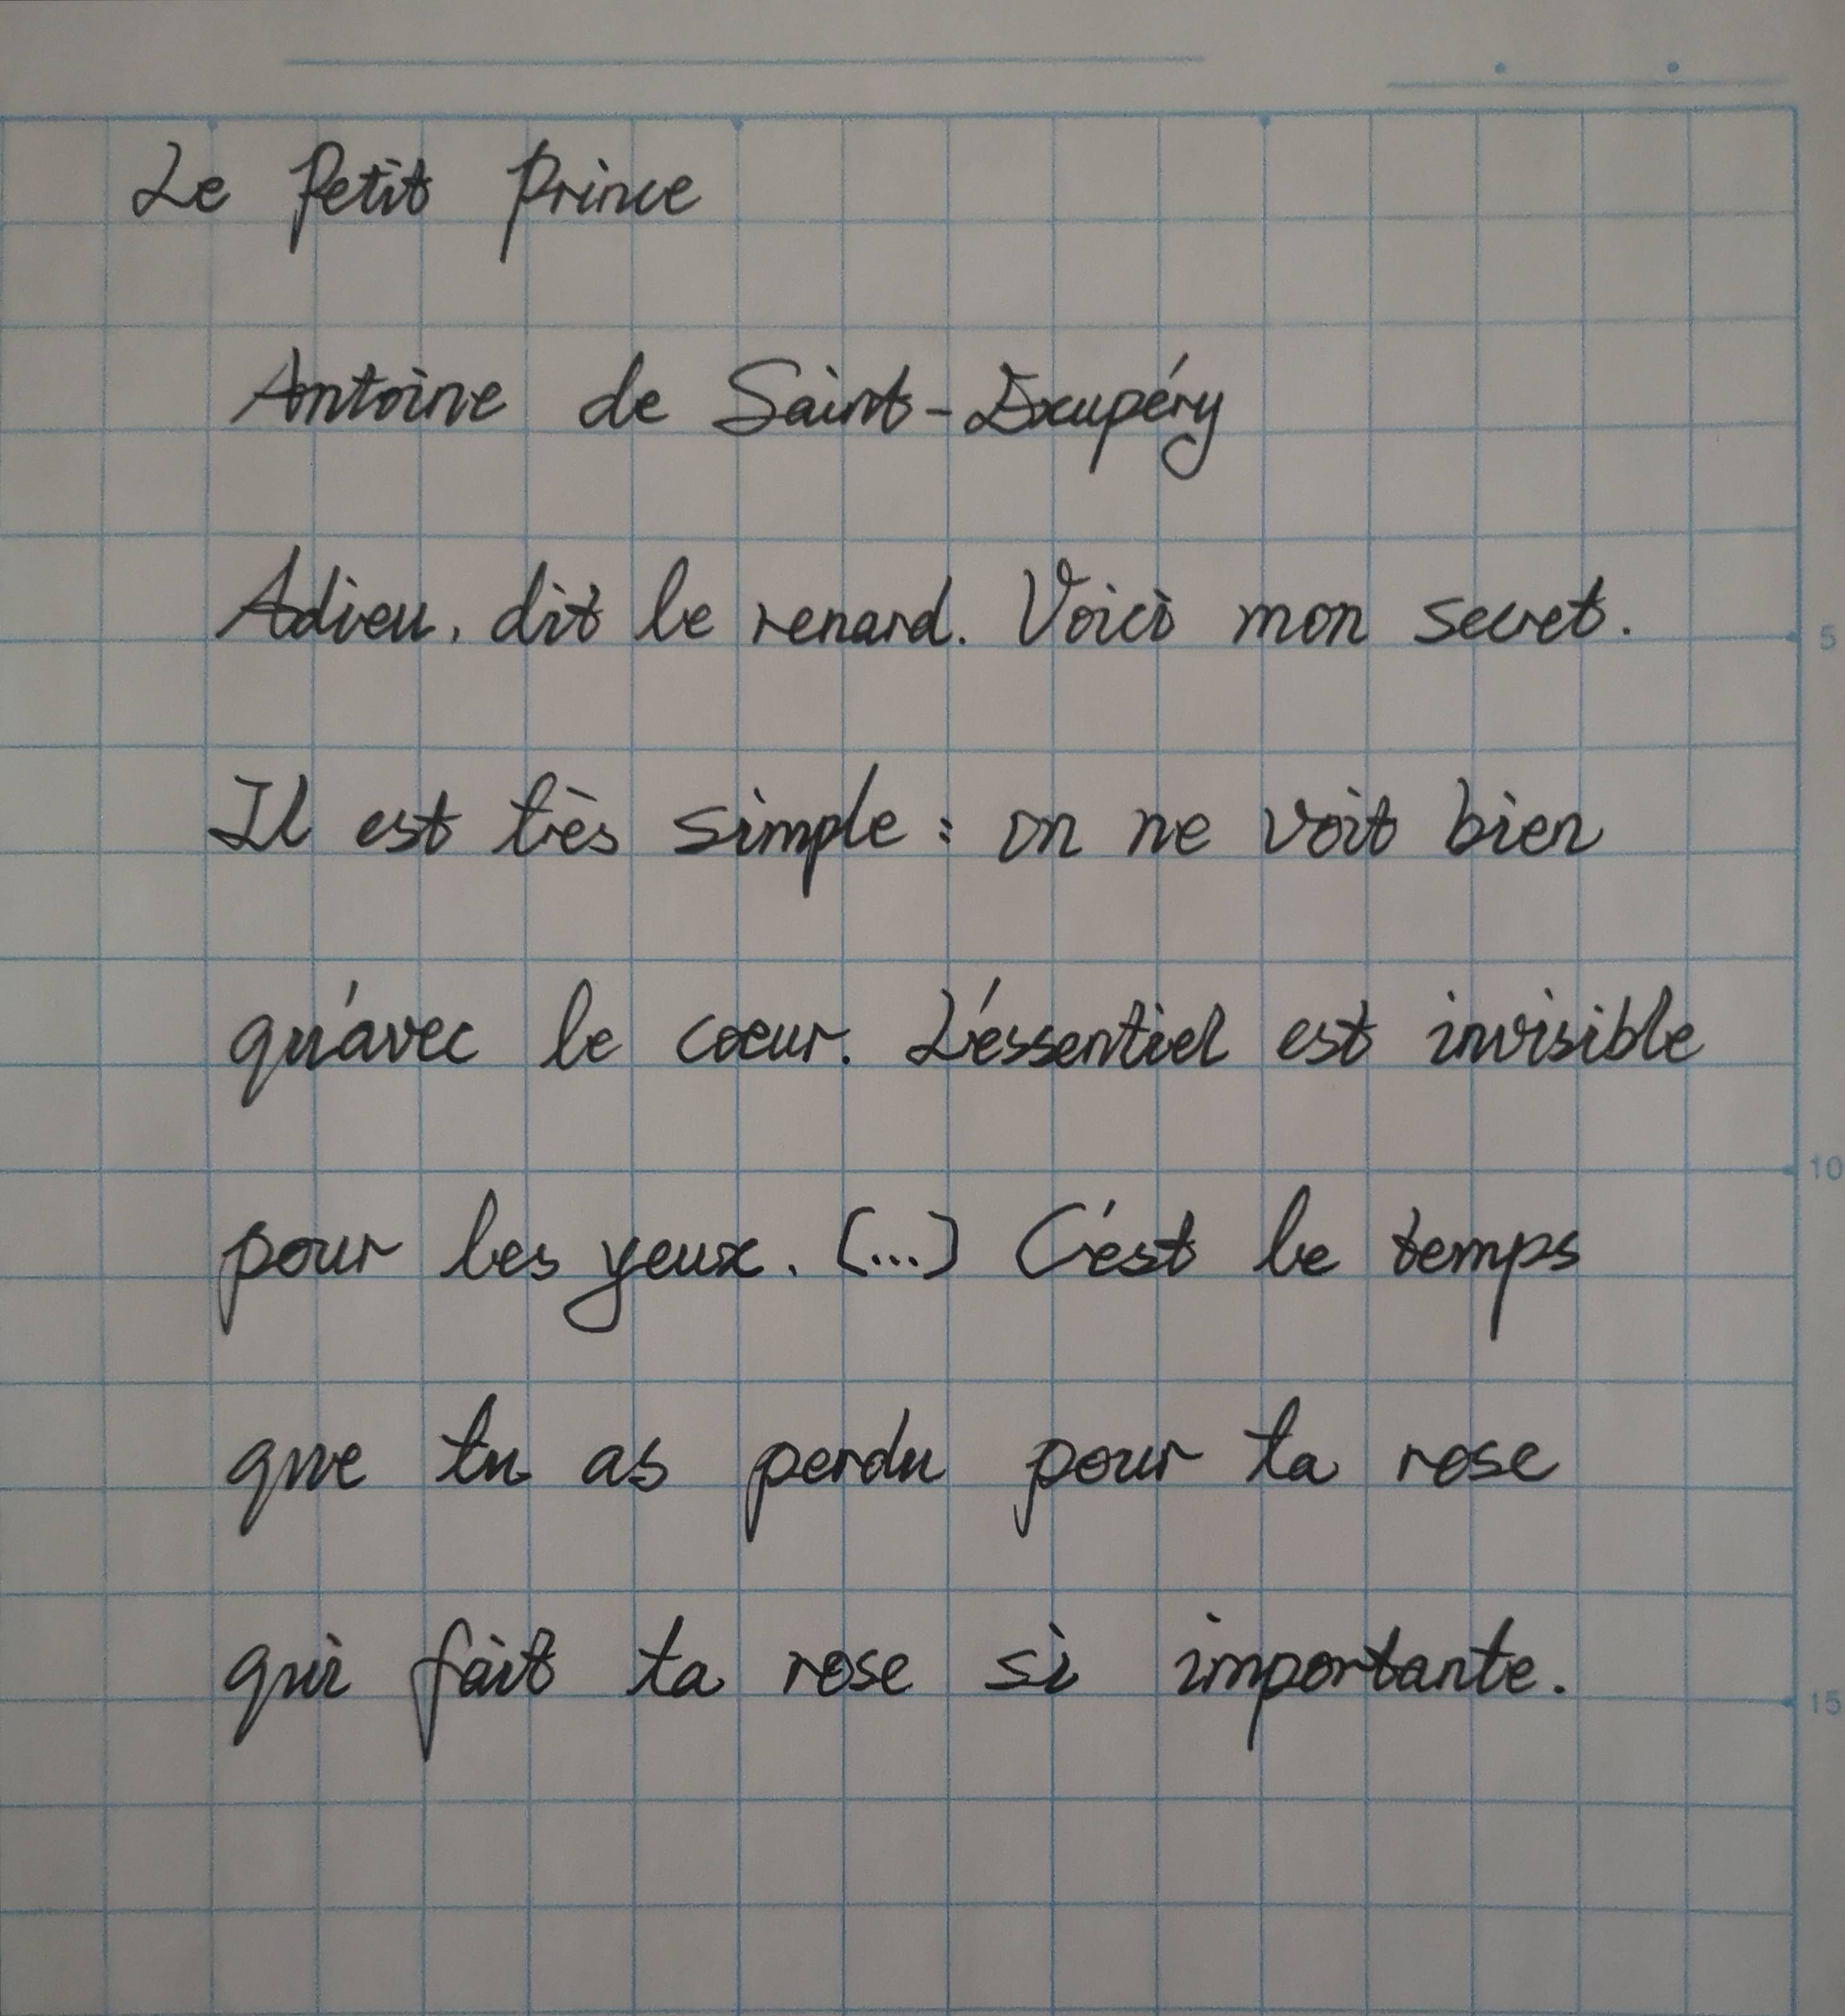 Le Petit Prince
Antoine de Saint-Exupéry
Adieu, dit le renard. Voici mon secret.
Il est très simple : on ne voit bien
qu'avec le coeur. L'essentiel est invisible
pour les yeux. (...) C'est le temps
que tu as perdu pour ta rose
qui fait ta rose si importante.
5
10
15